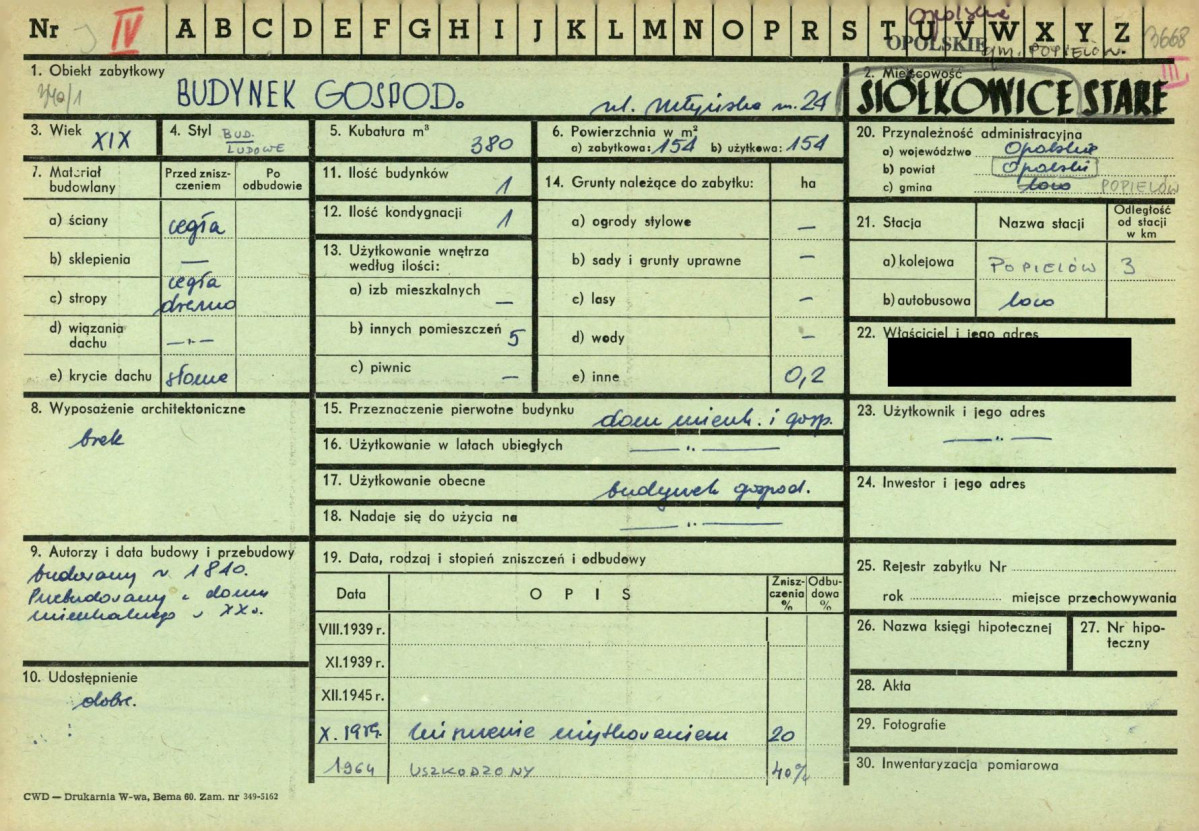 Nr IV A B C D E F G H I J K L M N O P R S T U V W X Y Z 3668
Opolskie
OPOLSKIE gm. POPIELÓW.
III
1. Obiekt zabytkowy
BUDYNEK GOSPOD. ul. Młyńska nr. 24
2. Miejscowość
SIOŁKOWICE STARE
3. Wiek XIX
4. Styl BUD. LUDOWE
5. Kubatura m³ 380
6. Powierzchnia w m²
a) zabytkowa: 154 b) użytkowa: 154
7. Materiał budowlany
Przed zniszczeniem
Po odbudowie
a) ściany cegła
b) sklepienia —
c) stropy cegła drewno
d) wiązania dachu —„—
e) krycie dachu słoma
8. Wyposażenie architektoniczne
brak
9. Autorzy i data budowy i przebudowy
budowany r. 1810.
Przebudowany z domu
mieszkalnego w XX w.
10. Udostępnienie
dobre.
11. Ilość budynków 1
12. Ilość kondygnacji 1
13. Użytkowanie wnętrza według ilości:
a) izb mieszkalnych —
b) innych pomieszczeń 5
c) piwnic —
14. Grunty należące do zabytku: ha
a) ogrody stylowe —
b) sady i grunty uprawne —
c) lasy —
d) wody —
e) inne 0,2
15. Przeznaczenie pierwotne budynku dom mieszk. i gosp.
16. Użytkowanie w latach ubiegłych —„—
17. Użytkowanie obecne budynek gospod.
18. Nadaje się do użycia na —„—
19. Data, rodzaj i stopień zniszczeń i odbudowy
Data O P I S Zniszczenia % Odbudowa %
VIII.1939 r.
XI.1939 r.
XII.1945 r.
X. 1959. zniszczenie użytkowaniem 20
1964 USZKODZONY 40%
20. Przynależność administracyjna
a) województwo Opolskie
b) powiat Opolski
c) gmina loco POPIELÓW
21. Stacja Nazwa stacji Odległość od stacji w km
a) kolejowa POPIELÓW 3
b) autobusowa loco
22. Właściciel i jego adres
23. Użytkownik i jego adres
—„—
24. Inwestor i jego adres
25. Rejestr zabytku Nr
rok miejsce przechowywania
26. Nazwa księgi hipotecznej
27. Nr hipoteczny
28. Akta
29. Fotografie
30. Inwentaryzacja pomiarowa
CWD — Drukarnia W-wa, Bema 60. Zam. nr 349-5162